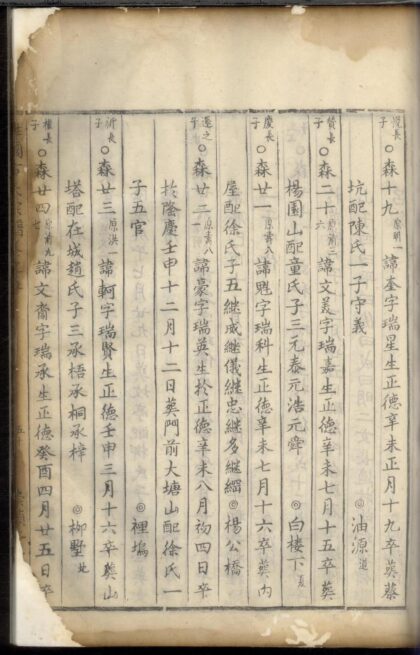 悦長子○森十九原明一諱奎字瑞星生正德辛未正月十九卒葬蔡
坑配陳氏一子守義 ◎油源道
贊長子○森二十六諱文美字瑞嘉生正德辛未七月十五卒葬
楊園山配童氏子三元泰元浩元舜 ◎白楼下夏
慶長子○森廿一原壽八諱魁字瑞科生正德辛未七月十六卒葬內
屋配徐氏子五継咸継儀継忠継多継綱 ◎楊公橋
遜之子○森廿二原壽八諱豪字瑞英生扵正德辛未八月初四日卒
扵隆慶壬申十二月十二日葬門前大塘山配徐氏一
子五官 ◎裡塢
長子○森廿三原洪一諱軻字瑞賢生正德壬申三月十六卒葬山
塔配在城趙氏子三承梧承桐承梓 ◎柳墅北
權長子○森廿四原壽九諱文齋字瑞承生正德癸酉四月廿五日卒